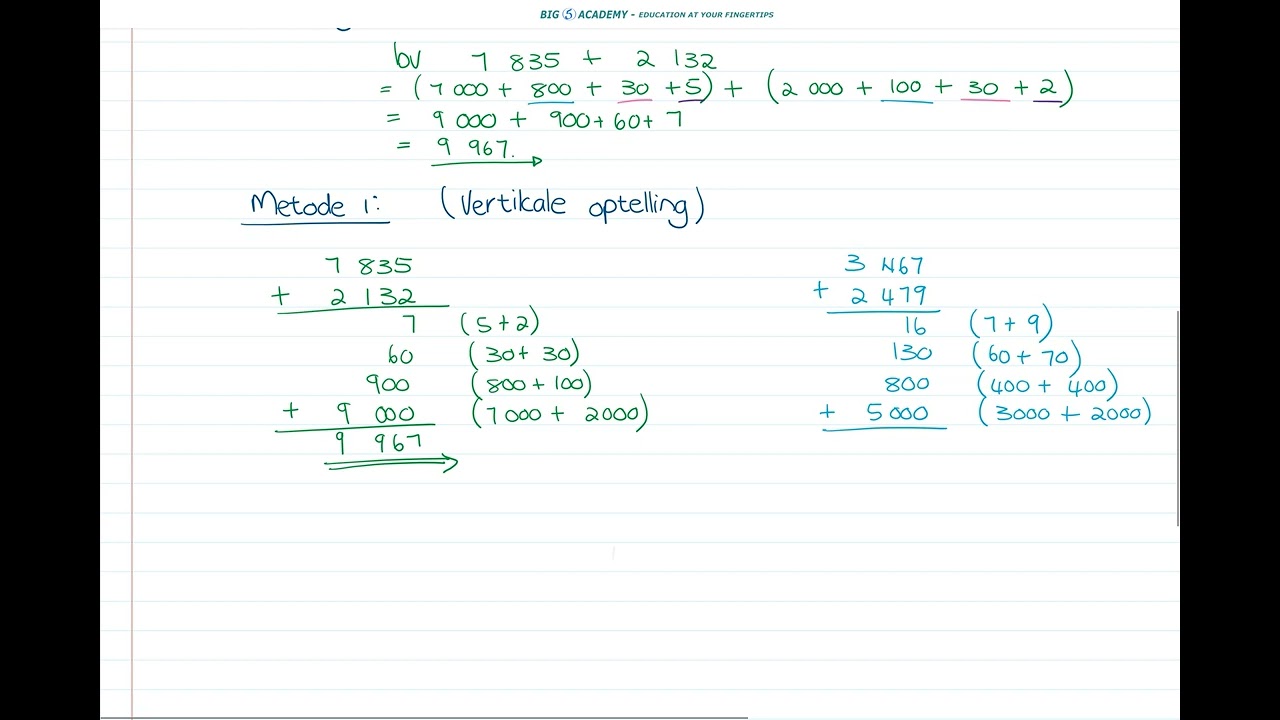 BIG 5 ACADEMY - EDUCATION AT YOUR FINGERTIPS
bv 7 835 + 2 132
= (7 000 + 800 + 30 + 5) + (2 000 + 100 + 30 + 2)
= 9 000 + 900 + 60 + 7
= 9 967.
Metode 1: (Vertikale optelling)
7 835
+ 2 132
7 (5 + 2)
60 (30 + 30)
900 (800 + 100)
+ 9 000 (7 000 + 2000)
9 967
3 467
+ 2 479
16 (7 + 9)
130 (60 + 70)
800 (400 + 400)
+ 5 000 (3000 + 2000)